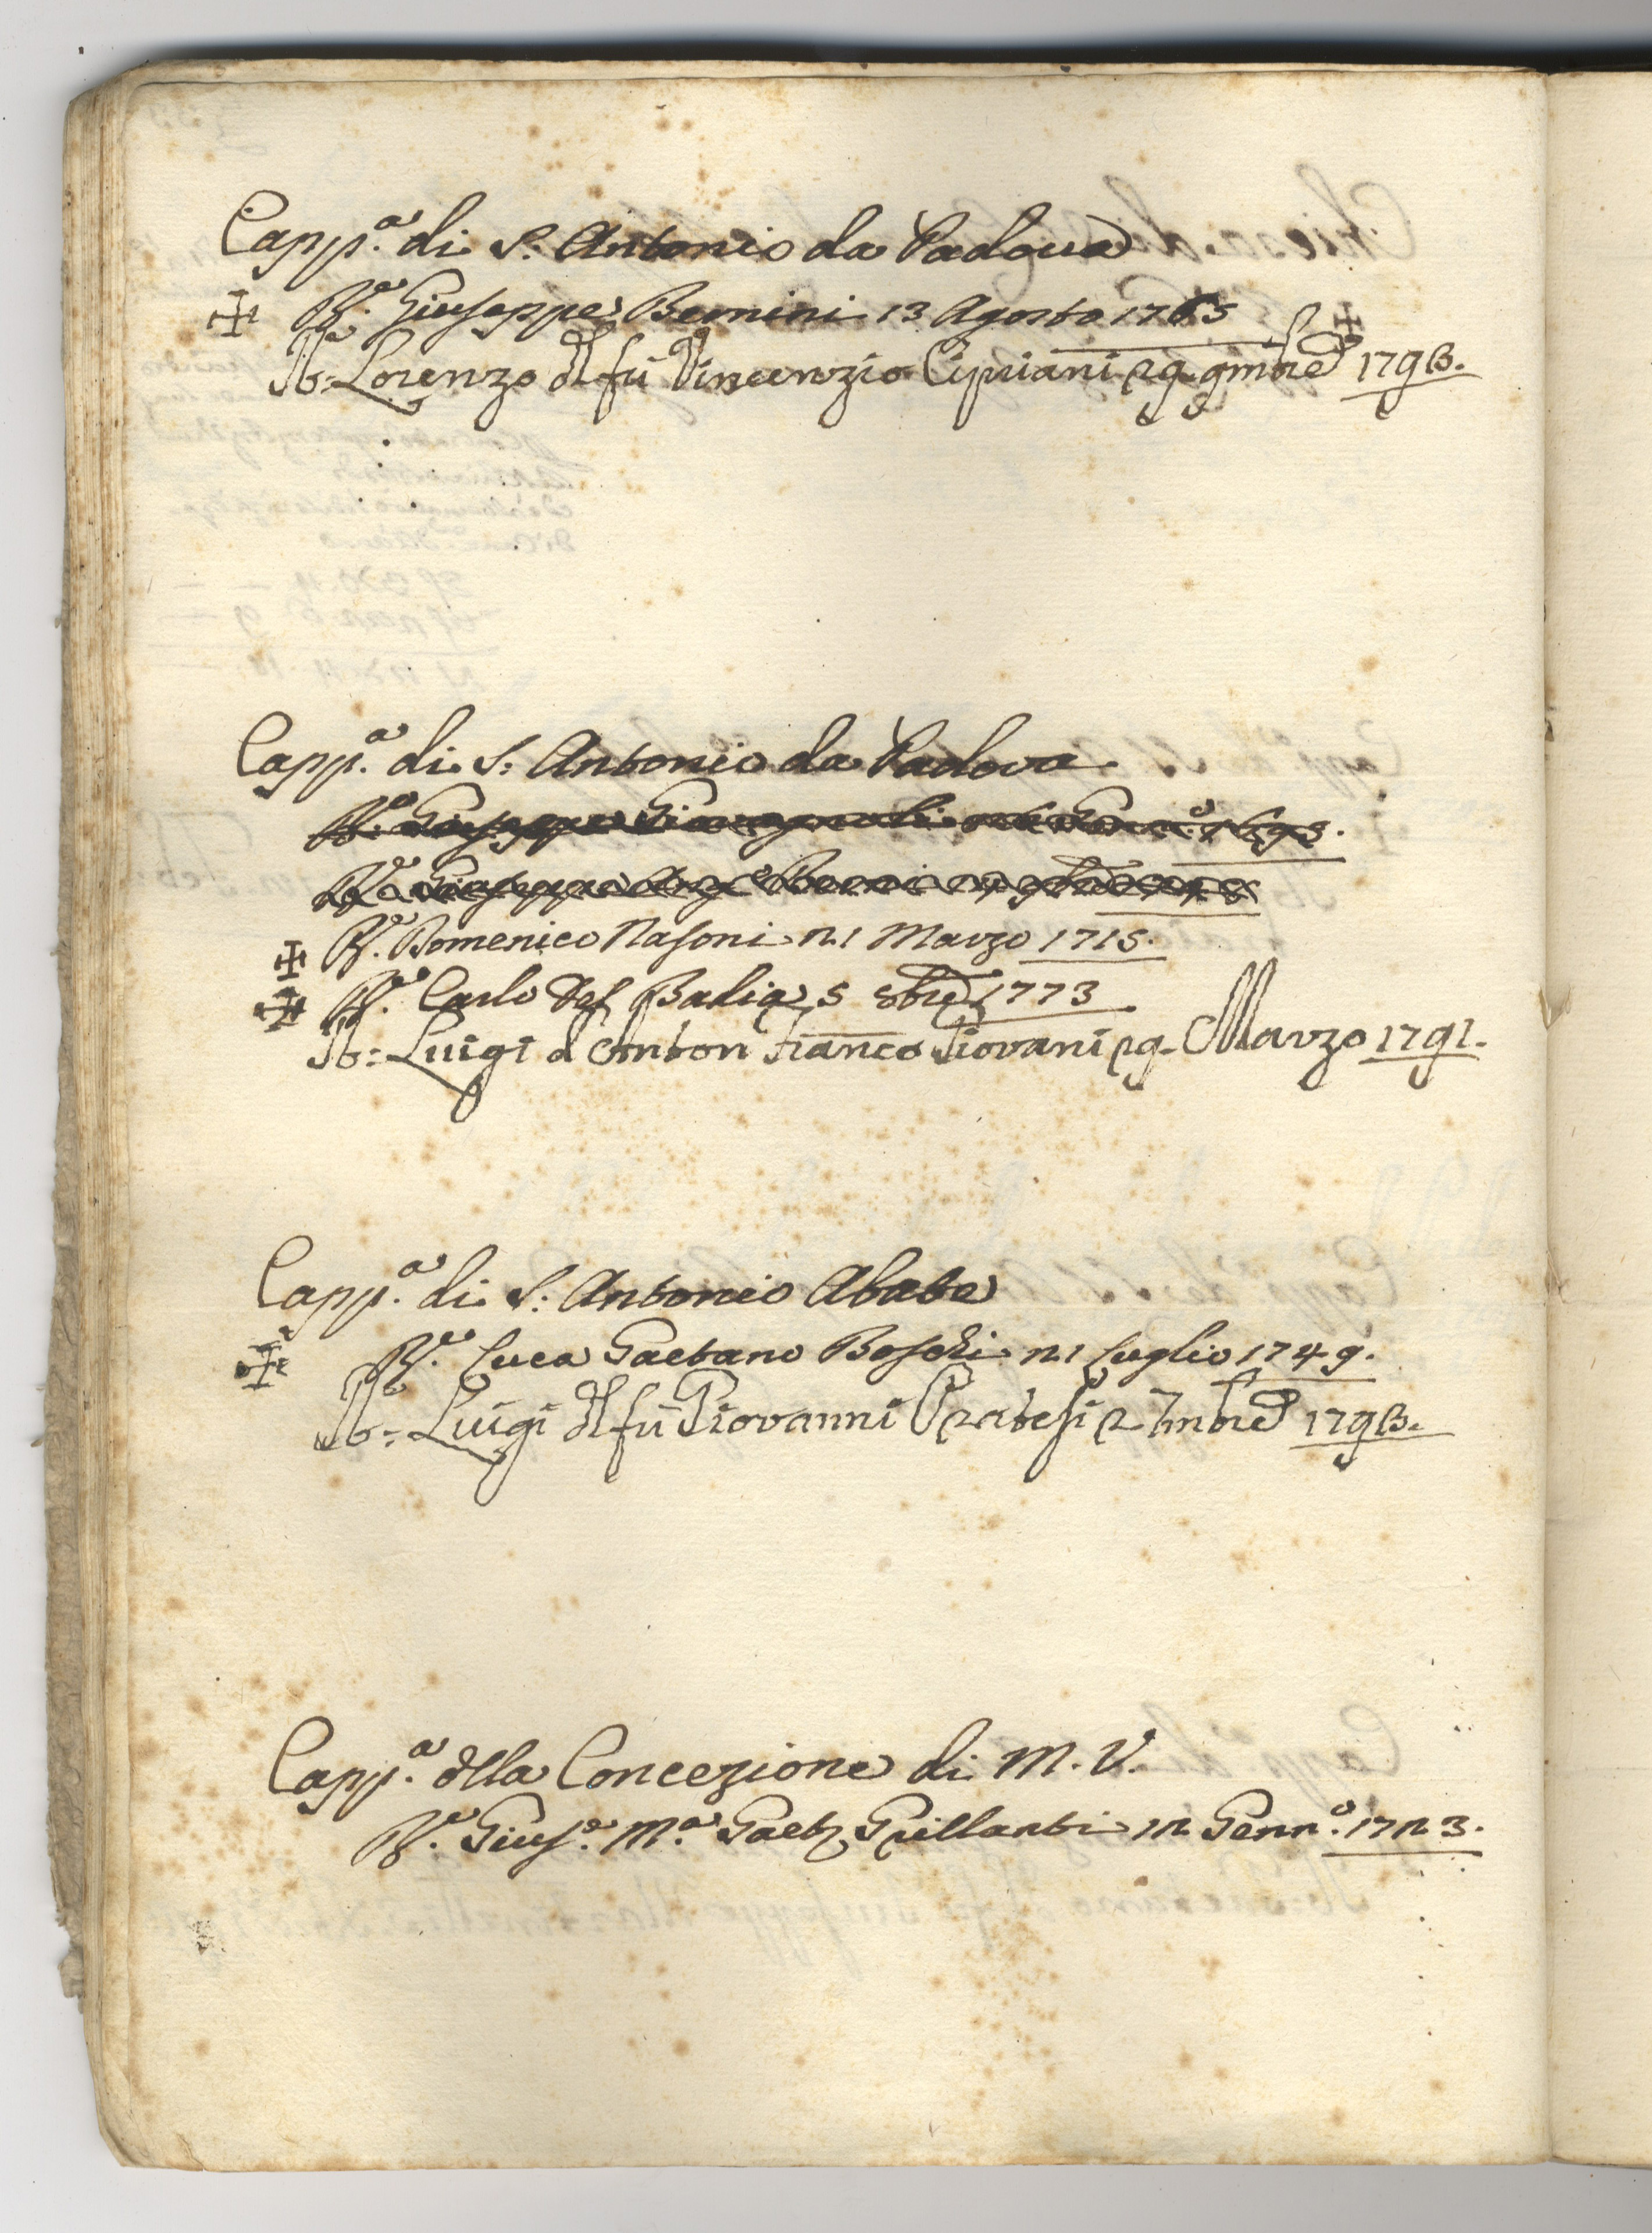 Capp.ª di S. Antonio da Padova
Rº. Giuseppe Bernini 13 Agosto 1765
Rº: Lorenzo dl fù Vincenzio Cipriani 29. 9mbre 1793.
Capp.ª di S: Antonio da Padova.
Rº. Giuseppe 1693.
Rº. Giuseppe
Rº. Domenico Nasoni 21 Marzo 1715.
Rº. Carlo Del Badia 5 8bre 1773
Rº: Luigi d Anton Franco Giovani 29. Marzo 1791.
Capp.ª di S. Antonio Abate
Rº. Luca Gaetano Boschi 21 Luglio 1749.
Rº: Luigi dl fù Giovanni Pratesi 2 7mbre 1793.
Capp.ª dlla Concezione di M. V.
Rº. Gius.e M.ª Gaet. Grillanti 12 Genn.º 1723.